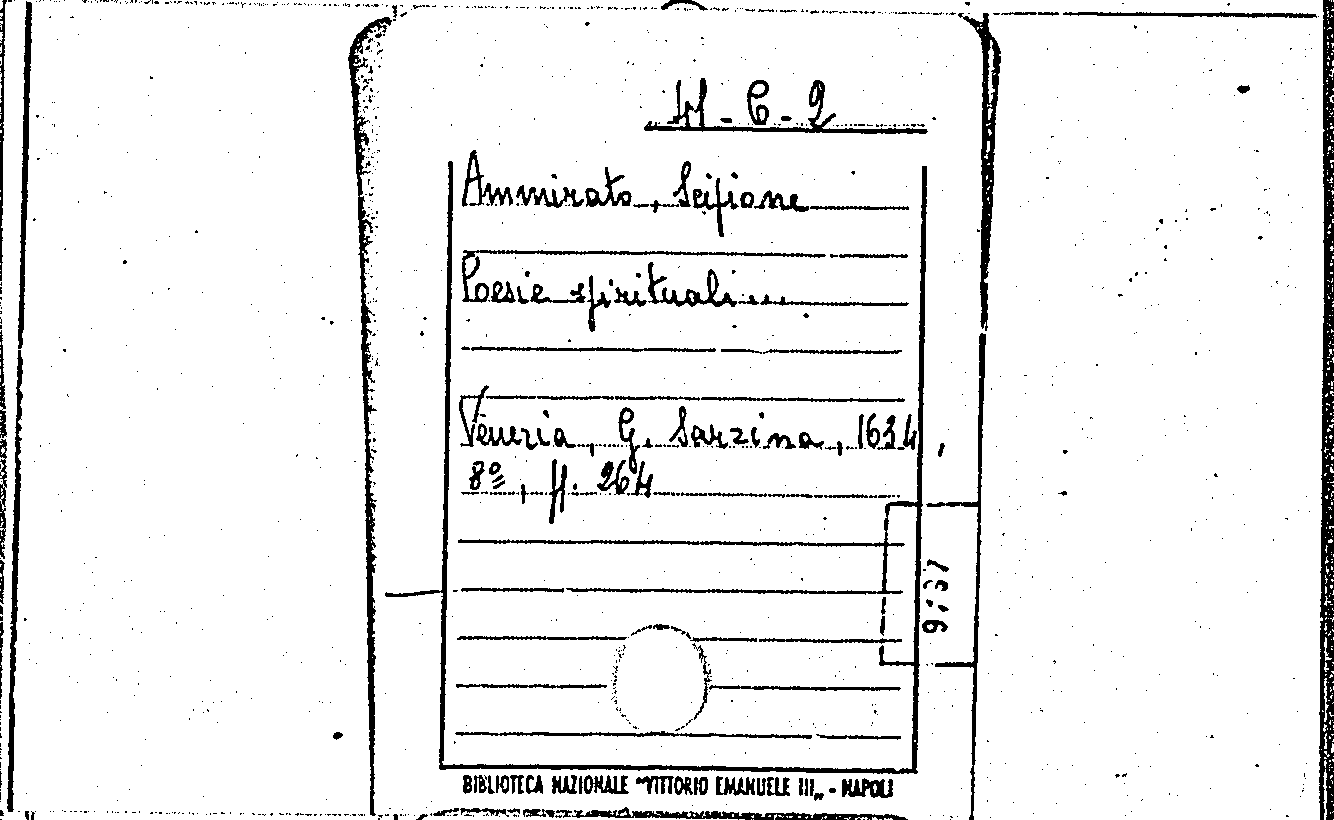 41-C-2
Ammirato, Scipione
Poesie spirituali...
Venezia, G. Sarzina, 1634,
8º, ff. 264
BIBLIOTECA NAZIONALE "VITTORIO EMANUELE III„ - NAPOLI